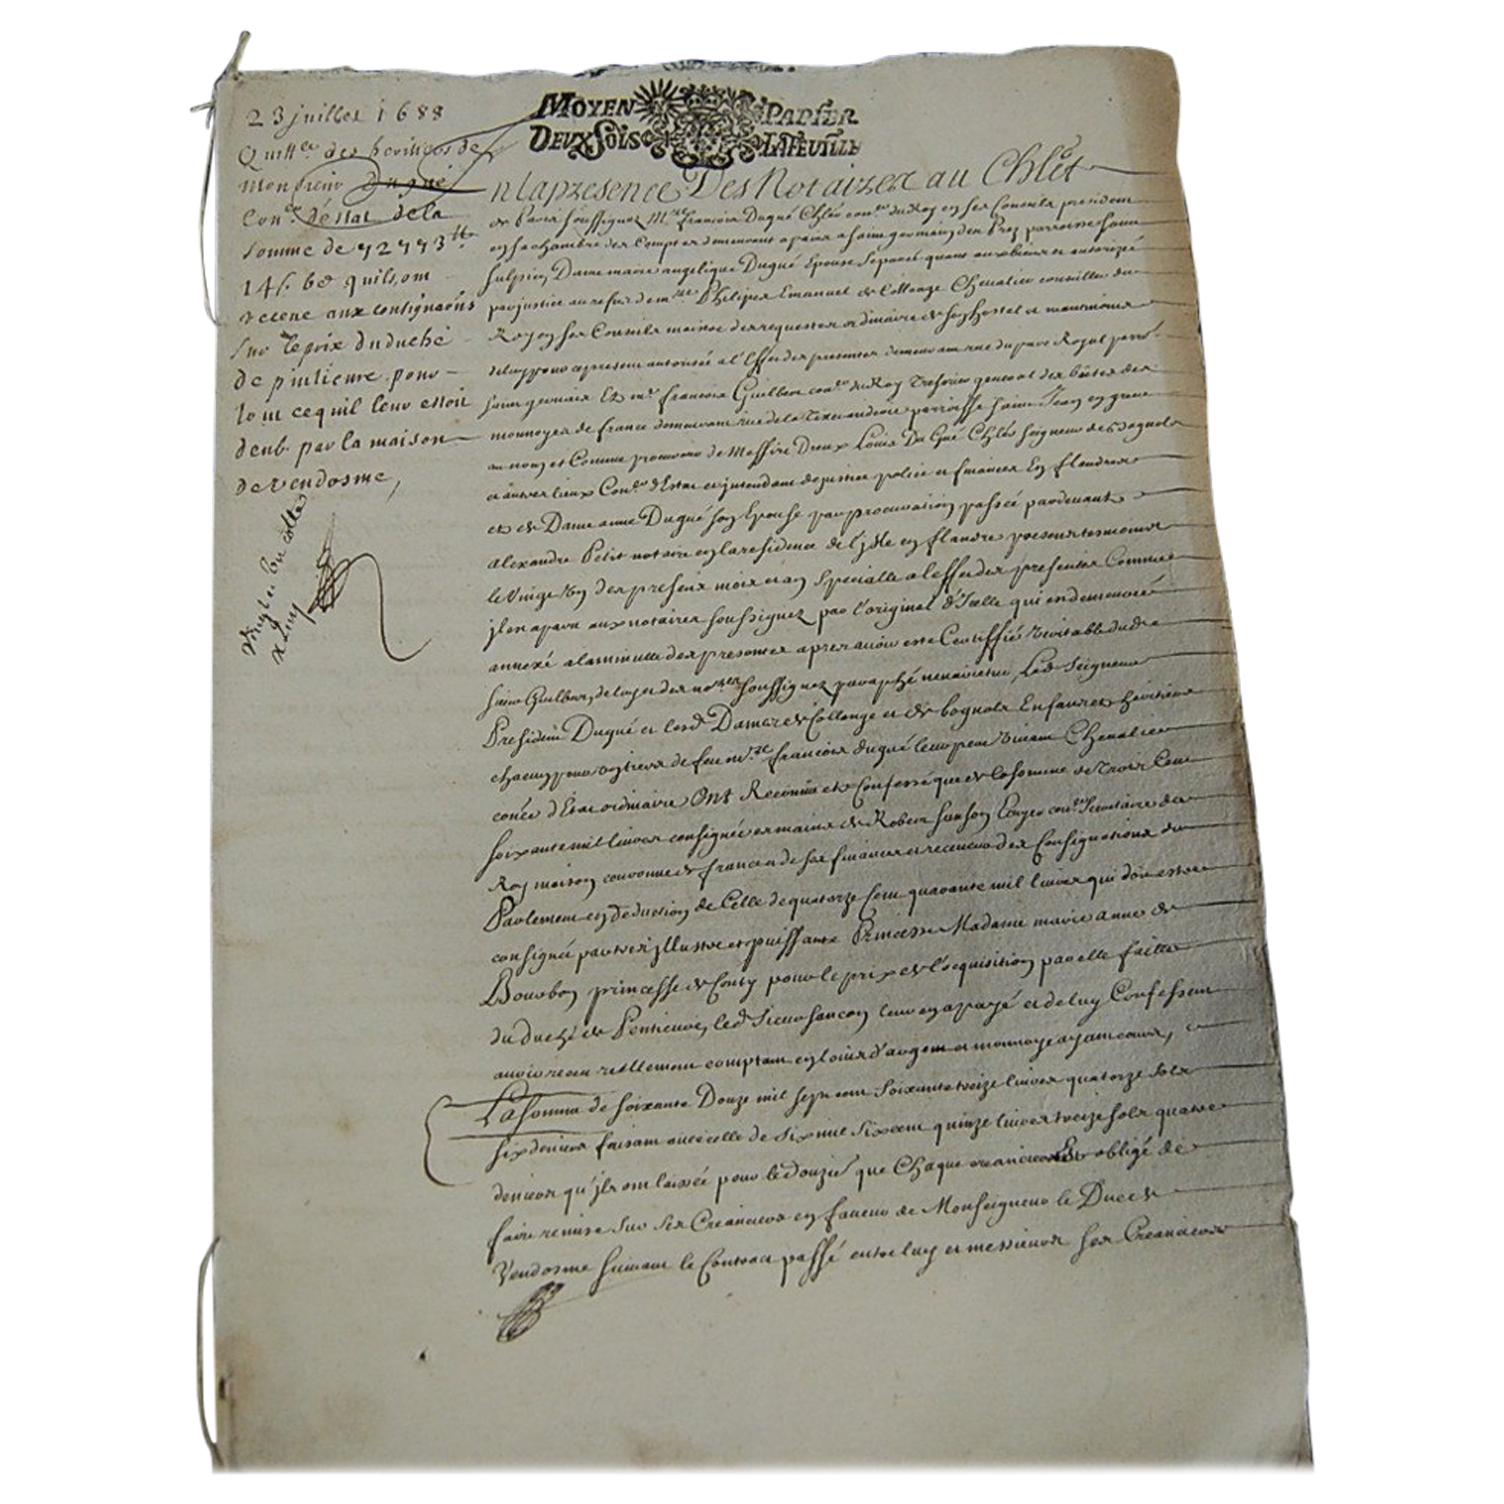 23 juillet 1688
Quittce des heritiers de
Monsieur Dugué
Concer d'Estat de la
somme de 72773tt
14s. 6d quils ont
receue aux consignaōns
sur le prix du duché
de pintievre pour
tout ce qui leur estoit
deub par la maison
de vendosme,
MOYEN PAPIER
DEUX SOLS LA FEUILLE
En la presence Des Notaires au Chlet
de Paris soussignez Mre francois Dugué Chlēr concer du Roy en ses Conseils president
en sa chambre des Comptes demeurant a paris a saint germain des Prez parroisse saint
sulpice, Dame marie angelique Dugué Epouse separée quant aux biens et autorizée
par justice au refus de mre Philipes Emanuel de Collange Chevalier conseiller du
Roy en ses Conseils maistre des requestes ordinaire de son hostel et
de luy pour ce present autorisée a l'Effet des presentes demeurant rue du parc Royal parrō.
saint gervais Et mr francois Guilbert concer du Roy Tresorier general des boetes des
monnoyes de france demeurant rue de la Tixeranderie parroisse saint Jean en greve
au nom et Comme procureur de Messire Dreux Louis Du Gué Chlēr seigneur de Bagnols
et autres lieux Concer d'Estat et intendant de justice police et finances En flandres
et de Dame anne Dugué son Epouse par procuration passée pardevant
alexandre Petit notaire en la residence de l'isle en flandre presens tesmoins
le Vingt des presens mois et an specialle a l'effet des presentes Comme
il en aparu aux notaires soussignez par l'original d'Icelle qui est demeuré
annexé a la minutte des presentes apres avoir esté Certiffié veritable dudt
sieur Guilbert, de luy et des nores soussignez paraphé ne varietur, Led. Seigneur
President Dugué et lesd. Dames de Collange et de bagnols Enfans et heritiers
chacun pour un tiers de feu mre francois dugué leur pere vivant Chevalier
concer d'Estat ordinaire Ont Reconnu et Confessé que de la somme de Trois Cens
soixante mil livres consignée es mains de Robert sanson Ecuyer concer Secretaire du
Roy maison couronne de france et de ses finances et receveur des Consignations du
Parlement en Deduction de Celle de quatorze Cent quarante mil livres qui doit estre
consigné par tres illustre et puissante Princesse Madame marie anne de
Bourbon princesse de Conty pour le prix de l'acquisition par elle faitte
du duché de Pentievre, led. Sieur sanson leur en a payé et de luy Confessent
avoir receu reellement comptant en louis d'argent et monnoye ayant cours,
La somme de soixante Douze mil sept cent soixante treize livres quatorze sols
six deniers faisant avec celle de six mil six cent quinze livres treize sols quatre
deniers qu'ils ont laissée pour le douzie que Chaque creancier Est obligé de
faire remise sur ses Creances en faveur de Monseigneur le Duc de
Vendosme suivant le Contract passé entre luy et messieurs ses Creanciers